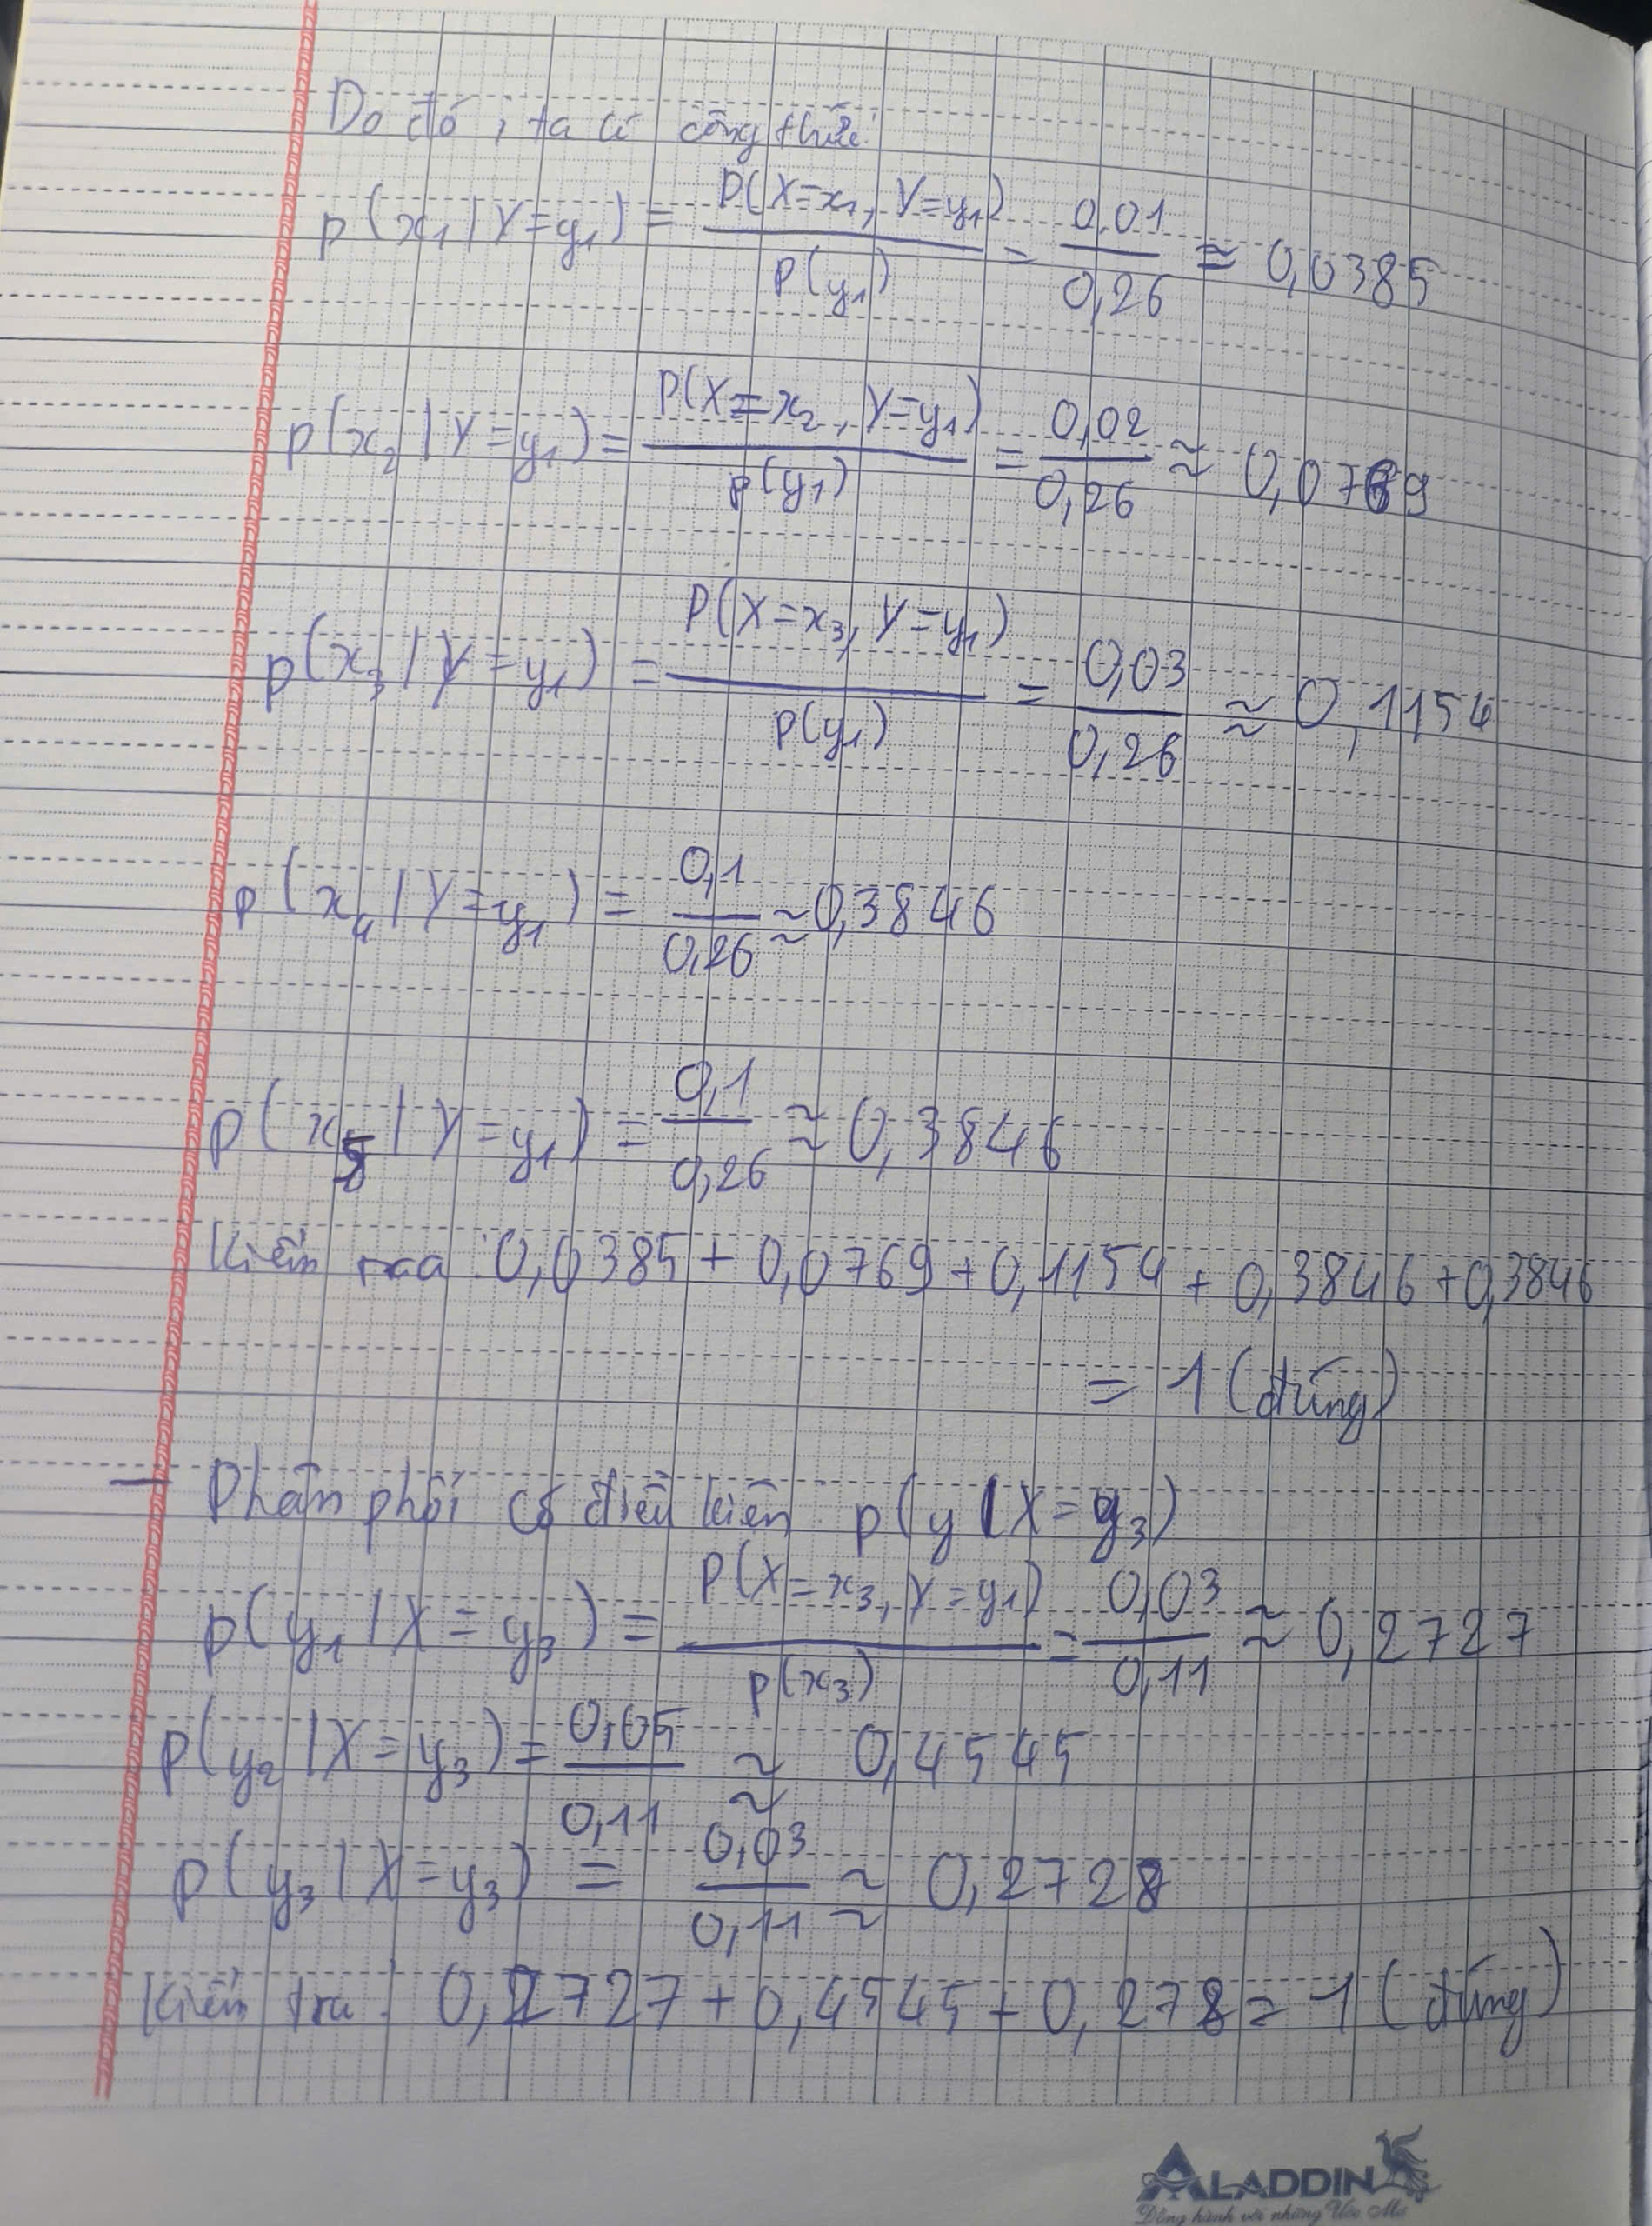 Do đó, ta có công thức:
p(x₁ | Y=y₁) = P(X=x₁, Y=y₁) / p(y₁) = 0,01 / 0,26 ≈ 0,0385
p(x₂ | Y=y₁) = P(X=x₂, Y=y₁) / p(y₁) = 0,02 / 0,26 ≈ 0,0769
p(x₃ | Y=y₁) = P(X=x₃, Y=y₁) / p(y₁) = 0,03 / 0,26 ≈ 0,1154
p(x₄ | Y=y₁) = 0,1 / 0,26 ≈ 0,3846
p(x₅ | Y=y₁) = 0,1 / 0,26 ≈ 0,3846
Kiểm tra : 0,0385 + 0,0769 + 0,1154 + 0,3846 + 0,3846
= 1 (đúng)
— Phân phối có điều kiện : p(y | X=y₃)
p(y₁ | X=y₃) = P(X=x₃, Y=y₁) / p(x₃) = 0,03 / 0,11 ≈ 0,2727
p(y₂ | X=y₃) = 0,05 / 0,11 ≈ 0,4545
p(y₃ | X=y₃) = 0,03 / 0,11 ≈ 0,2728
Kiểm tra : 0,2727 + 0,4545 + 0,278 = 1 (đúng)
ALADDIN
Đồng hành với những Ước Mơ